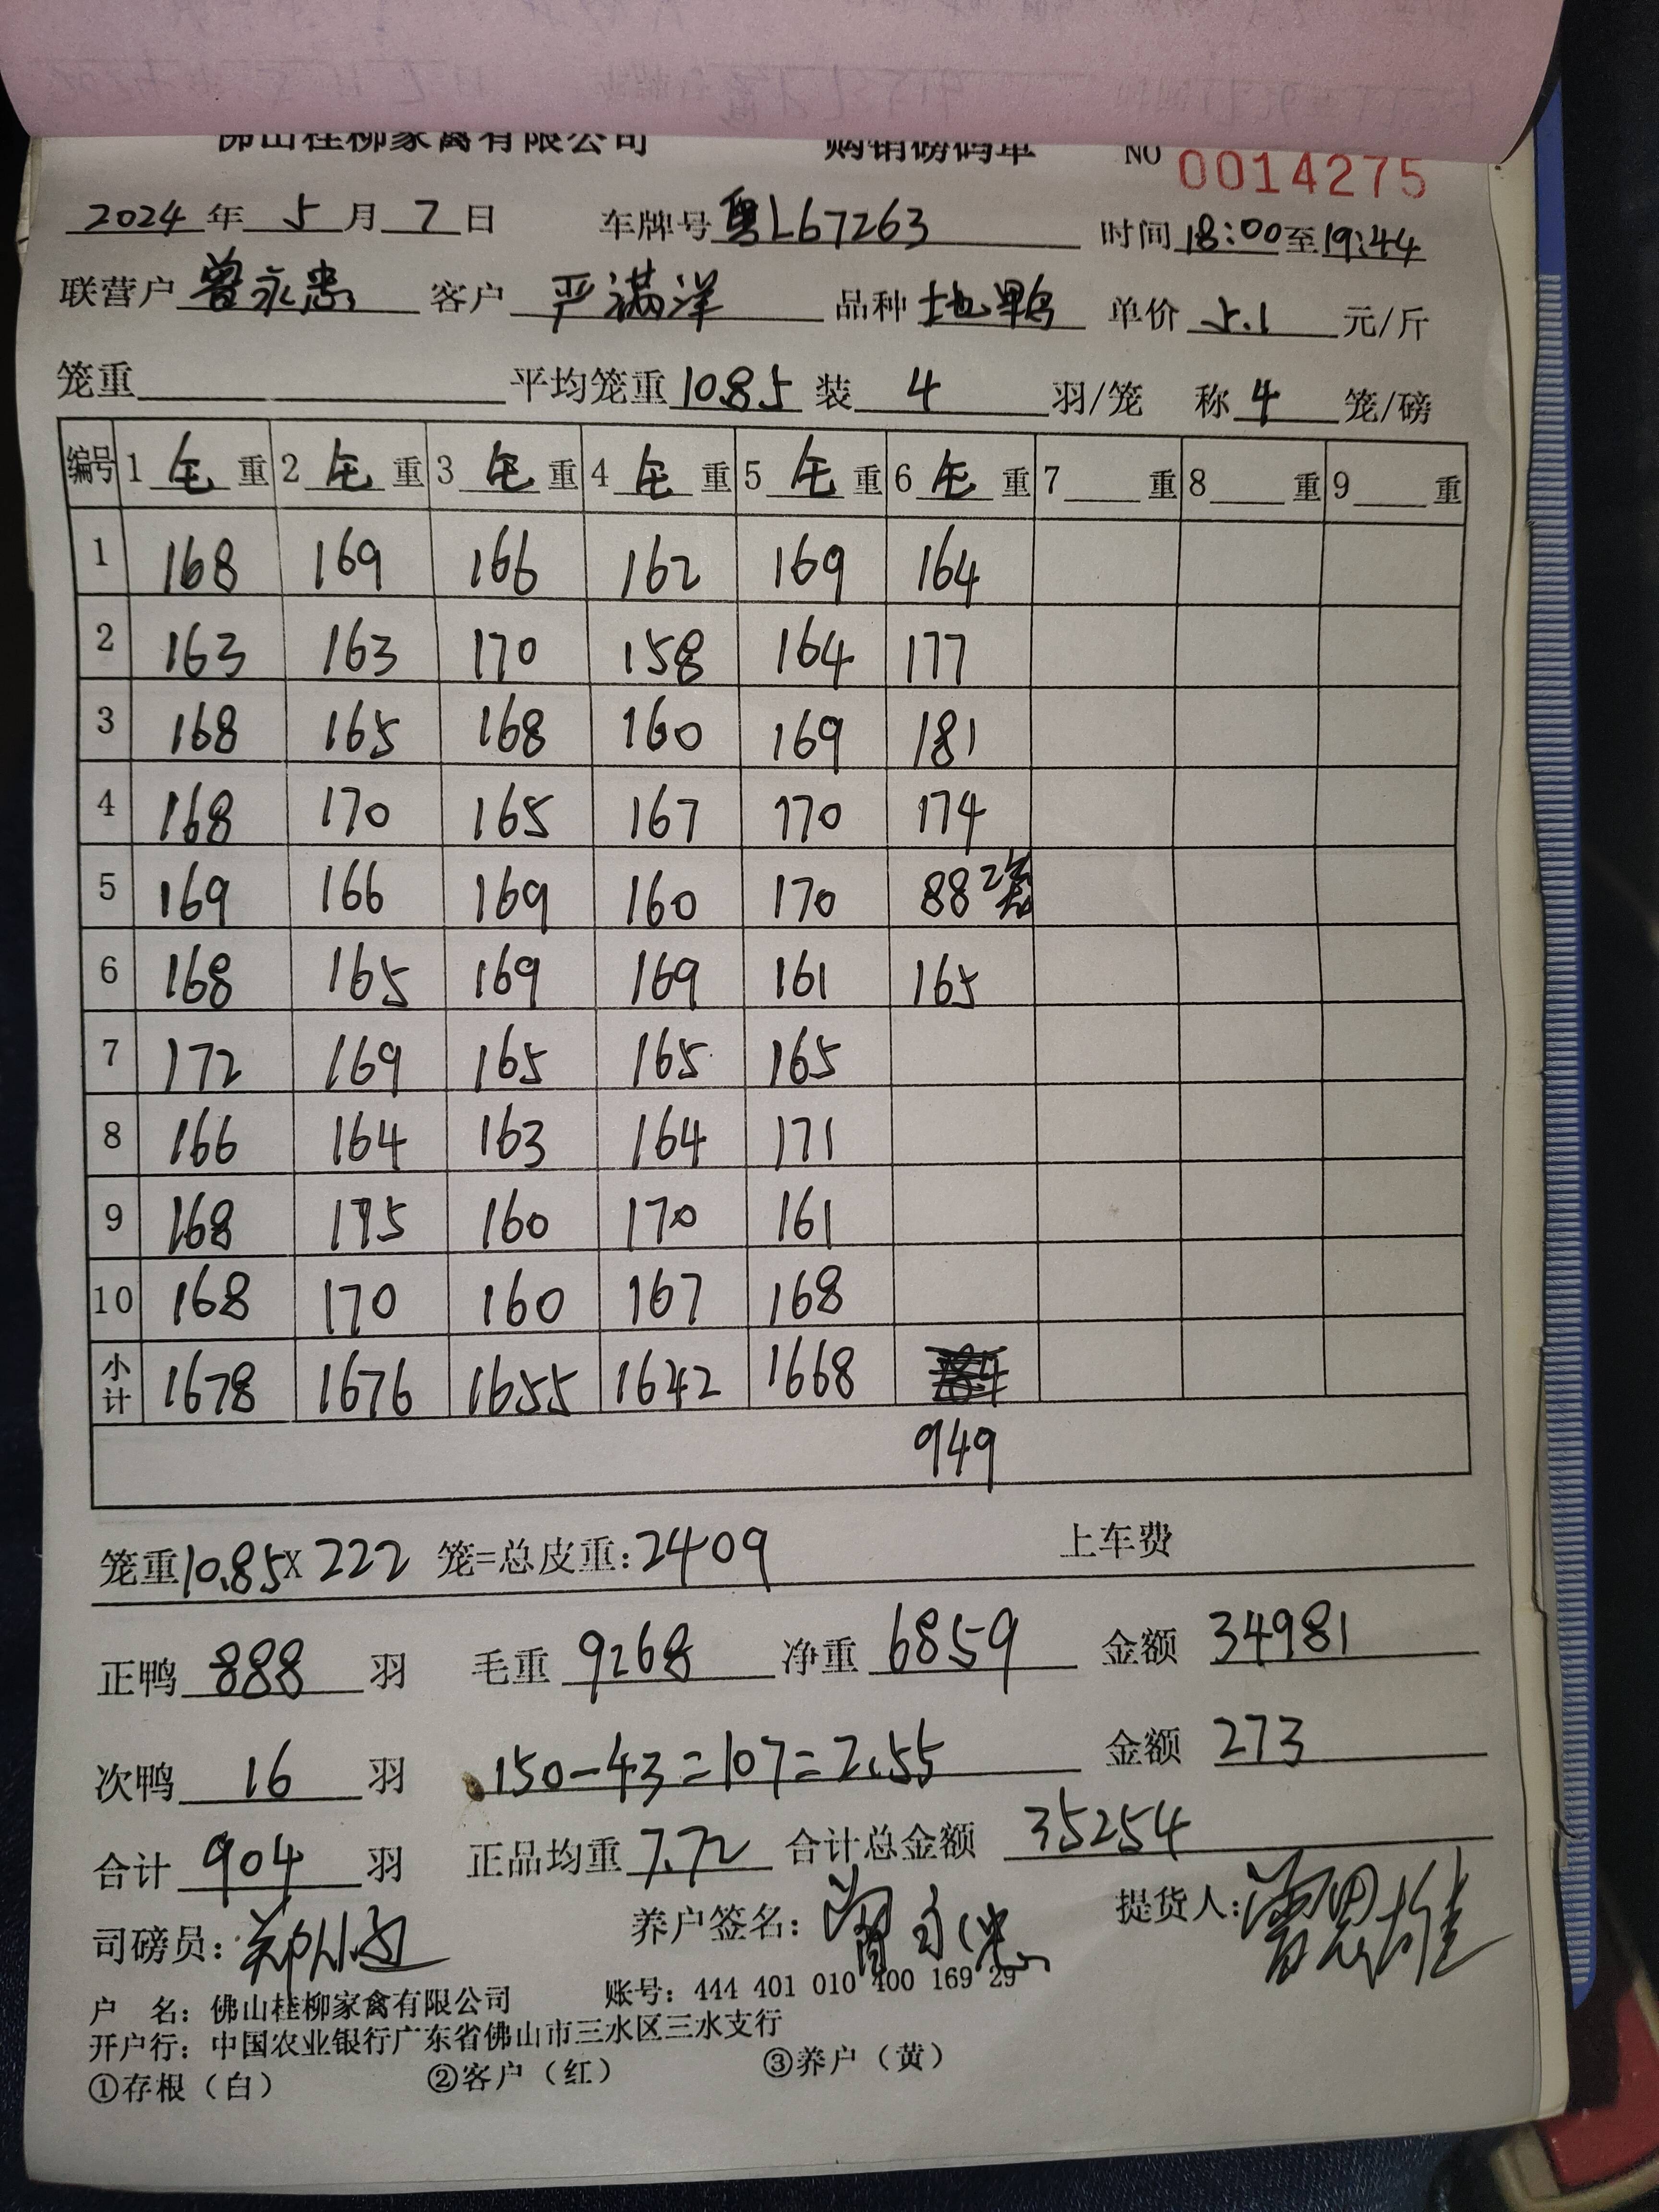 佛山桂柳家禽有限公司 购销磅码单 NO 0014275
2024 年 5 月 7 日 车牌号 粤L67263 时间 18:00 至 19:44
联营户 曾永忠 客户 严满洋 品种 土也鸭 单价 5.1 元/斤
笼重 平均笼重 10.85 装 4 羽/笼 称 4 笼/磅
编号 1 毛 重 2 毛 重 3 毛 重 4 毛 重 5 毛 重 6 毛 重 7 重 8 重 9 重
1 168 169 166 162 169 164
2 163 163 170 158 164 177
3 168 165 168 160 169 181
4 168 170 165 167 170 174
5 169 166 169 160 170 88 2笼
6 168 165 169 169 161 165
7 172 169 165 165 165
8 166 164 163 164 171
9 168 175 160 170 161
10 168 170 160 167 168
小计 1678 1676 1655 1642 1668
949
笼重 10.85 X 222 笼=总皮重: 2409 上车费
正鸭 888 羽 毛重 9268 净重 6859 金额 34981
次鸭 16 羽 150-43=107=2.55 金额 273
合计 904 羽 正品均重 7.72 合计总金额 35254
司磅员: 养户签名: 曾永忠 提货人:
户 名: 佛山桂柳家禽有限公司 账号: 444 401 010 400 169 29
开户行: 中国农业银行广东省佛山市三水区三水支行
①存根（白） ②客户（红） ③养户（黄）